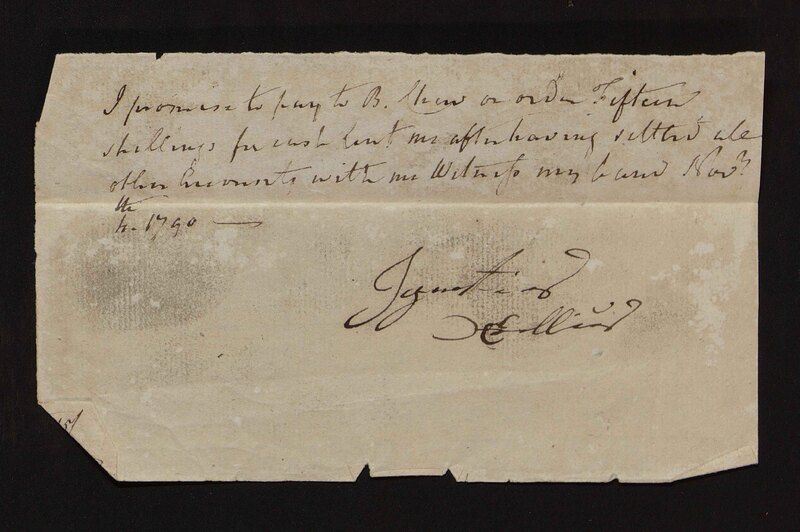 I promise to pay to B. Shaw or order Fifteen
shillings for cash lent me after having settled all
other Accounts with me Witness my hand Novr
4th 1790
Ignatius
15/